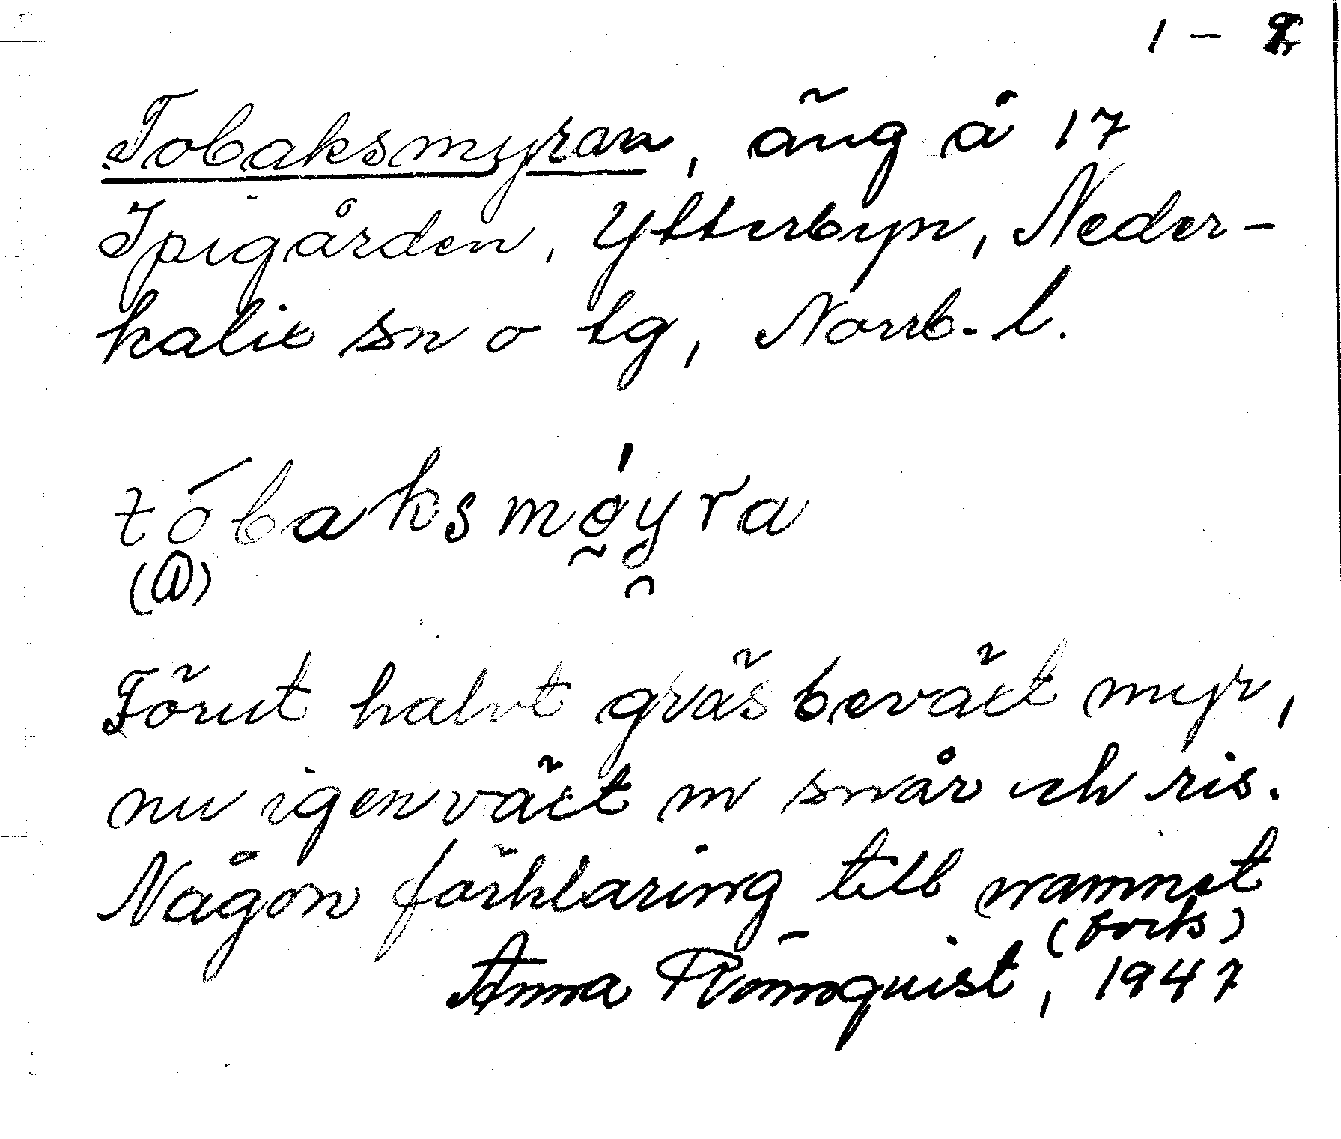 1 - 2
Tobaksmyran, äng å 17
Spigården, Ytterbyn, Neder-
kalix sn o tg, Norrb. l.
tóbaksmøyra
(a)
Förut halvt gräsbeväxt myr,
nu igenväxt m snår och ris.
Någon förklaring till namnet
(forts)
Anna Rönnquist, 1947